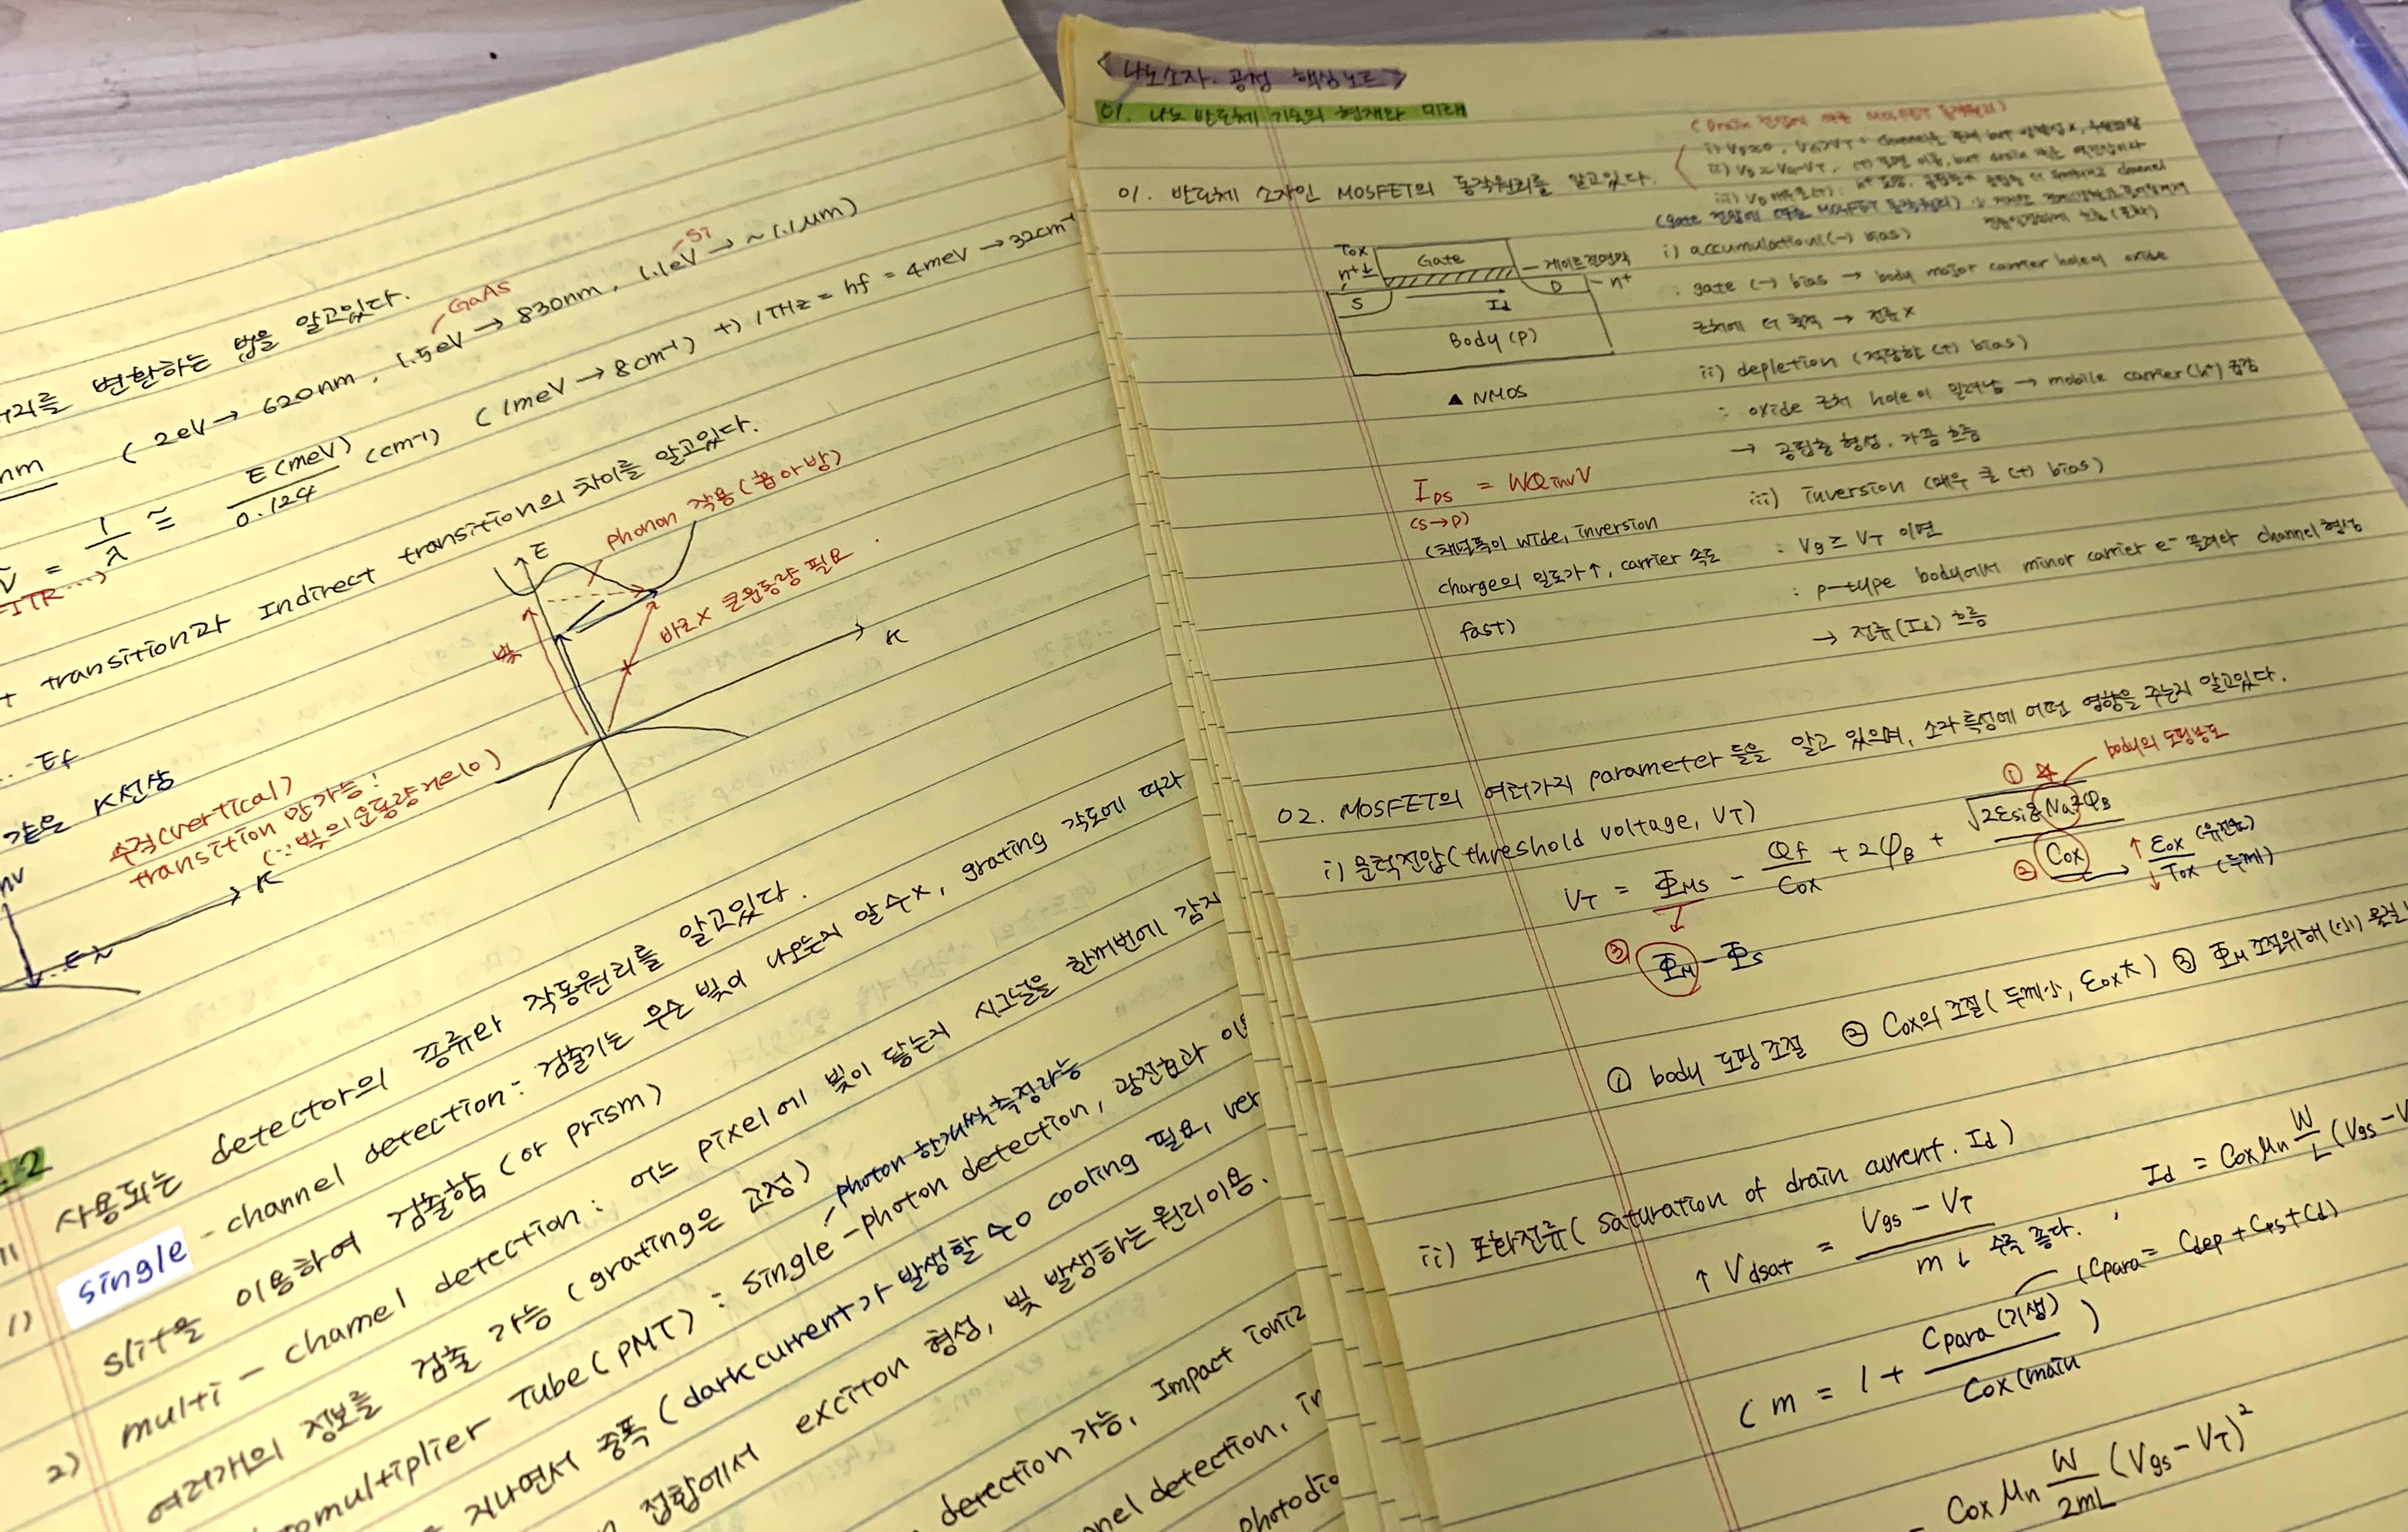 거리를 변환하는 법을 알고있다.
nm ( 2eV → 620nm, 1.5eV → 830nm, 1.1eV → ~1.1μm)
GaAs
Si
ṽ = 1/λ ≅ E(meV)/0.124 (cm⁻¹) ( 1meV → 8cm⁻¹) +) 1THz = hf = 4meV → 32cm⁻¹
transition과 Indirect transition의 차이를 알고있다.
E
phonon 작용(
빛
바로× 큰운동량 필요.
K
Ef
같은 K선상
수직(vertical)
transition 만 가능!
(∵ 빛의 운동량 zero)
hν
K
2
사용되는 detector의 종류와 작동원리를 알고있다.
1) single-channel detection : 검출기는 무슨 빛이 나오는지 알수×, grating 각도에 따라
slit을 이용하여 검출함 (or prism)
2) multi-channel detection : 어느 pixel에 빛이 닿는지 시그널을 한꺼번에 감지
여러개의 정보를 검출 가능 (grating은 고정)
photon 한개씩 측정가능
tomultiplier Tube(PMT) : single-photon detection, 광전효과 이
지나면서 증폭 (dark current가 발생할 수o cooling 필요, ver
접합에서 exciton 형성, 빛 발생하는 원리이용.
detection 가능, Impact ioniz
nel detection, in
photodio
<나노소자·공정 핵심노트>
01. 나노 반도체 기술의 현재와 미래
01. 반도체 소자인 MOSFET의 동작원리를 알고있다.
(Drain 전압에 따른 MOSFET 동작원리)
(gate 전압에 따른 MOSFET 동작원리)
Tox
n+↓
Gate
S
Id
D
n+
Body (P)
▲ NMOS
i) accumulation((-) bias)
: gate (-) bias → body major carrier hole이 oxide
근처에 더 축적 → 전류 ×
ii) depletion (적당한 (+) bias)
: oxide 근처 hole이 밀려남 → mobile carrier(h⁺) 공핍
→ 공핍층 형성, 가끔 흐름
iii) inversion (매우 큰 (+) bias)
: Vg ≥ VT 이면
: p-type body에서 minor carrier e⁻ 끌려와 channel 형성
→ 전류(Id) 흐름
IDS = WQinvV
(S→D)
(채널폭이 wide, inversion
charge의 밀도가↑, carrier 속도
fast)
02. MOSFET의 여러가지 parameter 들을 알고 있으며, 소자 특성에 어떤 영향을 주는지 알고있다.
i) 문턱전압(threshold voltage, VT)
① ☆ body의 도핑농도
VT = ΦMS - Qf/Cox + 2φB + √2εsi q Na 2φB / Cox
② → ↑ εox (유전율) / ↓ Tox (두께)
③ ΦM - ΦS
① body 도핑 조절 ② Cox의 조절 (두께小, εox大) ③ ΦM 조절위해
ii) 포화전류( saturation of drain current. Id)
↑ Vdsat = Vgs - VT / m↓ 수록 좋다. , Id = Cox μn W/L (Vgs - V
( m = 1 + Cpara(기생) / Cox(main )
(Cpara = Cdep + Cts + Cd)
= Cox μn W/2mL (Vgs - VT)²